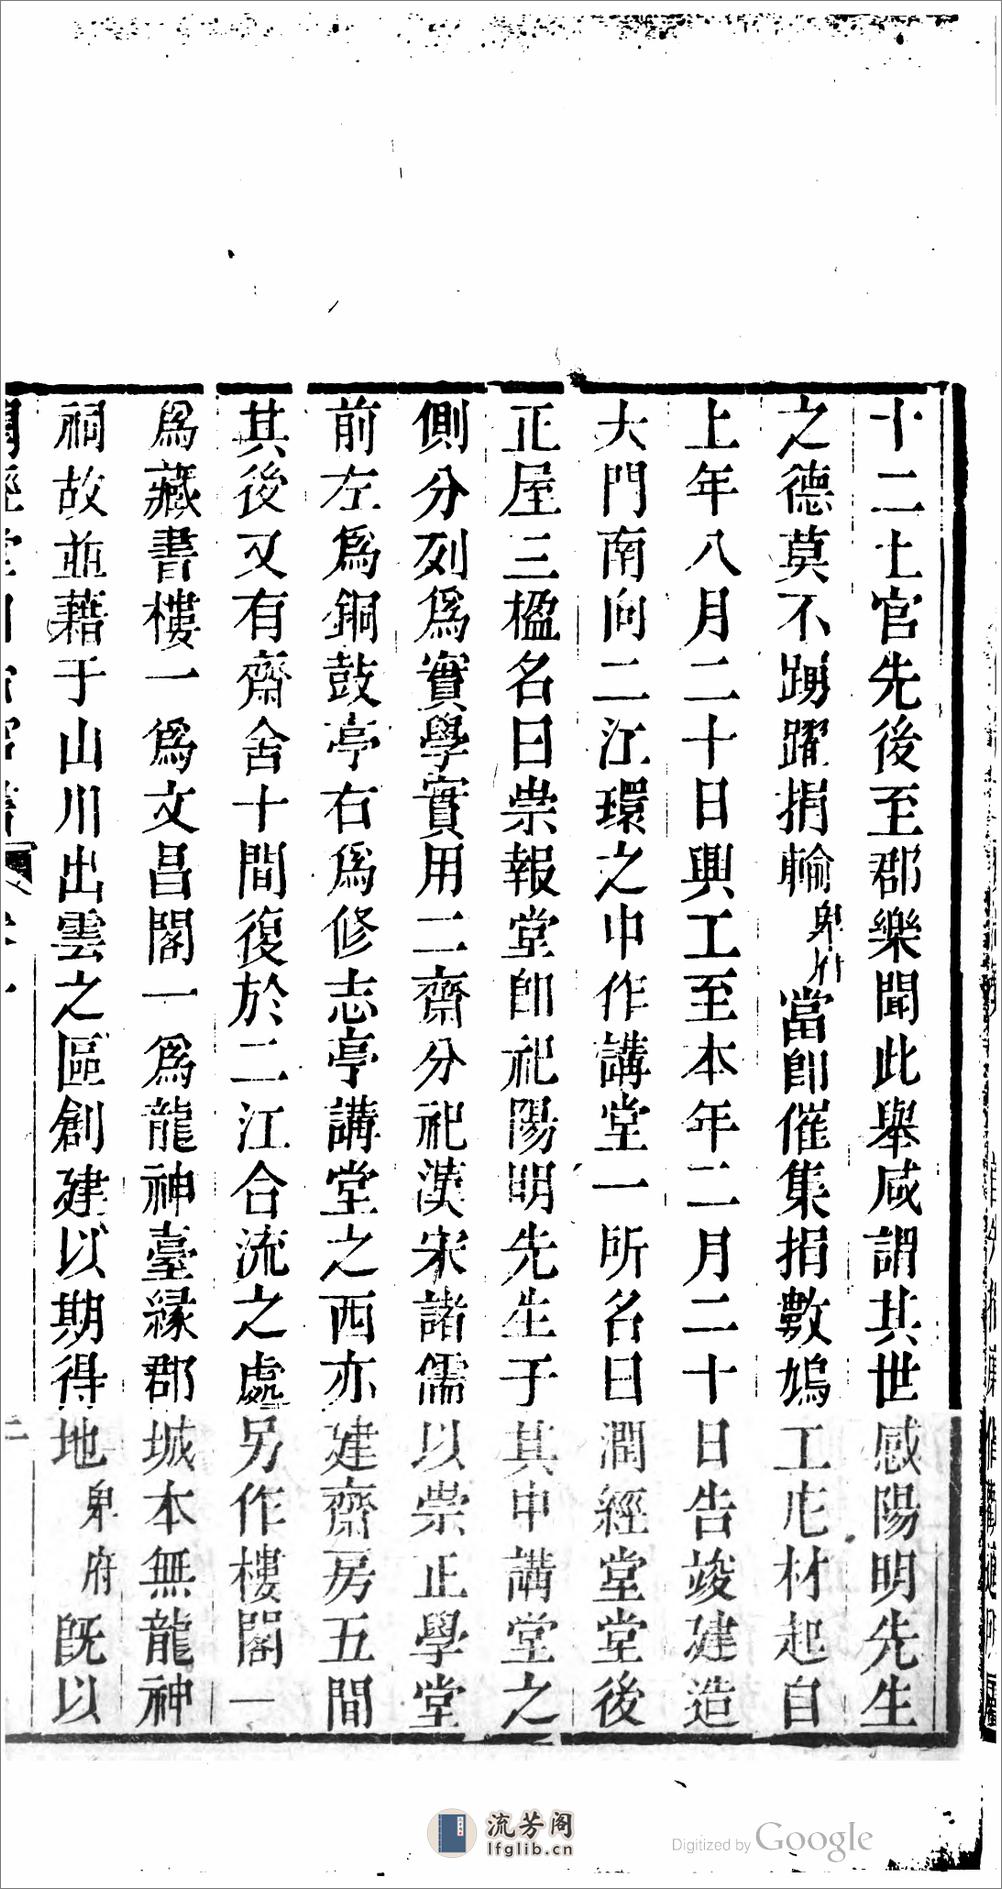 十二土官先後至郡樂聞此舉咸謂其世感陽明先生
之德莫不踴躍捐輸卑府當即催集捐數鳩工庀材起自
上年八月二十日興工至本年二月二十日告竣建造
大門南向二江環之中作講堂一所名曰潤經堂堂後
正屋三楹名曰崇報堂即祀陽明先生于其中講堂之
側分列爲實學實用二齋分祀漢宋諸儒以崇正學堂
前左爲銅鼓亭右爲修志亭講堂之西亦建齋房五間
其後又有齋舍十間復於二江合流之處另作樓閣一
爲藏書樓一爲文昌閣一爲龍神臺緣郡城本無龍神
祠故並藉于山川出雲之區創建以期得地卑府既以
流芳阁
lfglib.cn
Digitized by Google